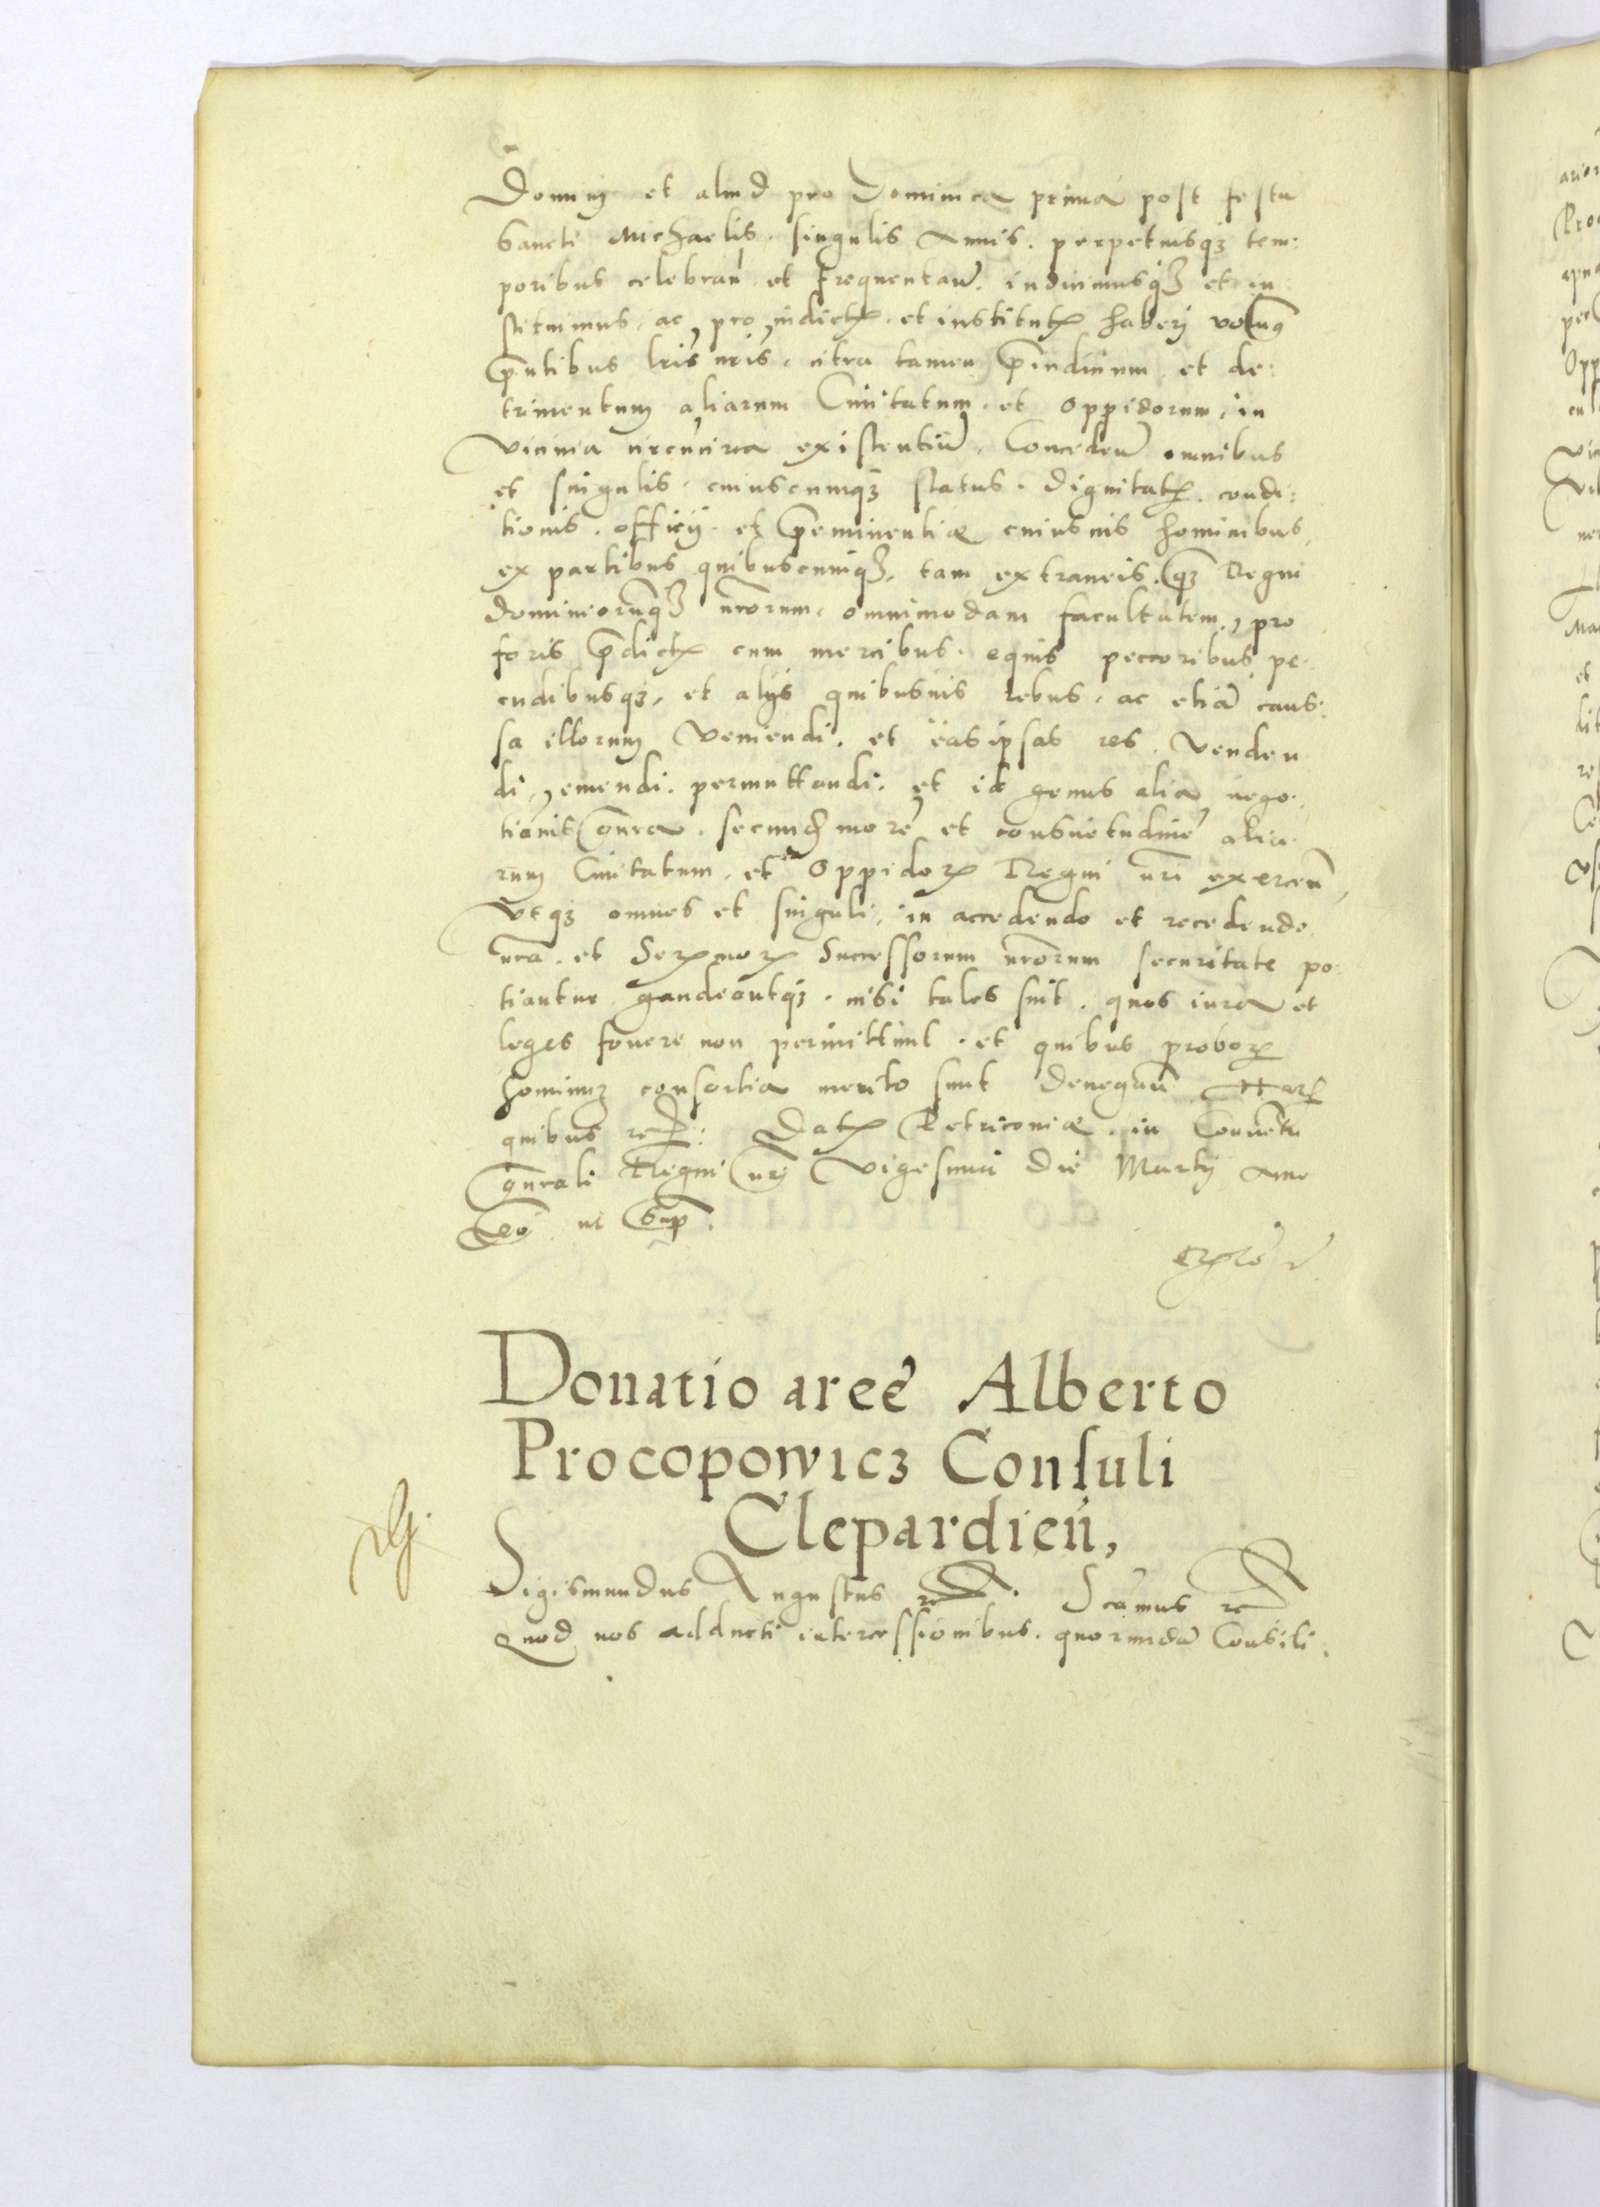 Domini et aliud pro Dominica prima post festu
Sancti Michaelis. singulis Annis. perpetuisqȝ tem:
poribus celebran̄ et frequentan̄. indicimusqȝ et in
stituimus. ac, pro indictꝭ. et institutꝭ haberi volumꝰ
p̄ntibus lris nris. citra tamen p̄iudicium et de:
trimentum aliarum Ciuitatum. et Oppidorum. in
vicinia circumcirca existentiū. Conceden̄ omnibus
et singulis. cuiuscumqȝ status. dignitatꝭ. condi:
tionis. officij. et p̄eminentiæ cuiusuis hominibus,
ex partibus quibuscumqȝ, tam extraneis. qȝ Regni
dominiorūqȝ nrorum. omnimodam facultatem, pro
foris p̄dictꝭ cum mercibus. equis peccoribus pe:
cudibusqȝ. et alijs quibusuis rebus. ac etiā caus:
sa illorum veniendi. et eas ipsas res. venden
di, emendi. permuttandi. et id genus alia nego:
tia secund̄ morē et consuetudinē alia:
rum Ciuitatum. et Oppidoꝝ Regni nri exercen̄,
vtqȝ omnes et singuli, in accedendo et recedendo
nra. et Serꝫmoꝝ Successorum nrorum securitate po
tiantur gaudeantqȝ. nisi tales sint. quos iura et
leges fouere non permittunt. et quibus proboꝝ
hominū consortia merito sunt denegan̄ Harꝝ
quibus rc: Datꝭ Petricouiæ. in Conuentu
gn̄rali Regni nri Vigesima die Martij Anno
eo ut Sup̄.
Donatio areē Alberto
Procopowicȝ Consuli
Clepardien̄,
Sigismundus Augustus rc. Scamus rc
Quod nos adducti intercessionibus. quorundā Consili.